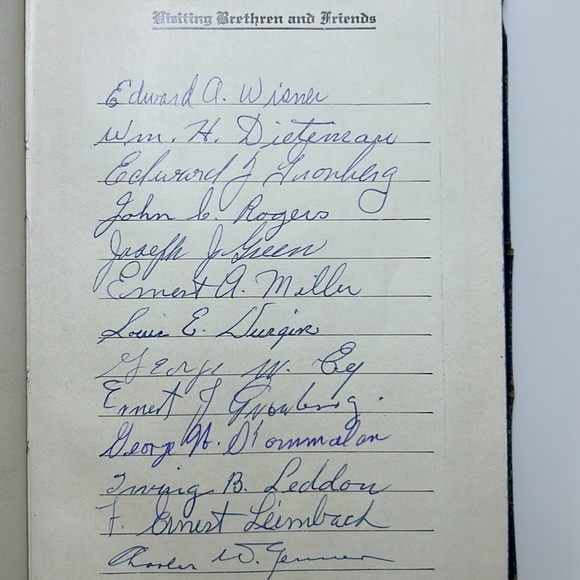 Visiting Brethren and Friends
Edward A. Wisner
Wm. H. Dieteman
Edward J Gronberg
John C. Rogers
Joseph J. Green
Ernest A. Miller
Louis E. Durgin
George W.
Ernest J Gronberg.
George W.
Irving B. Leddon
F. Ernest Leimbach
Charles W.